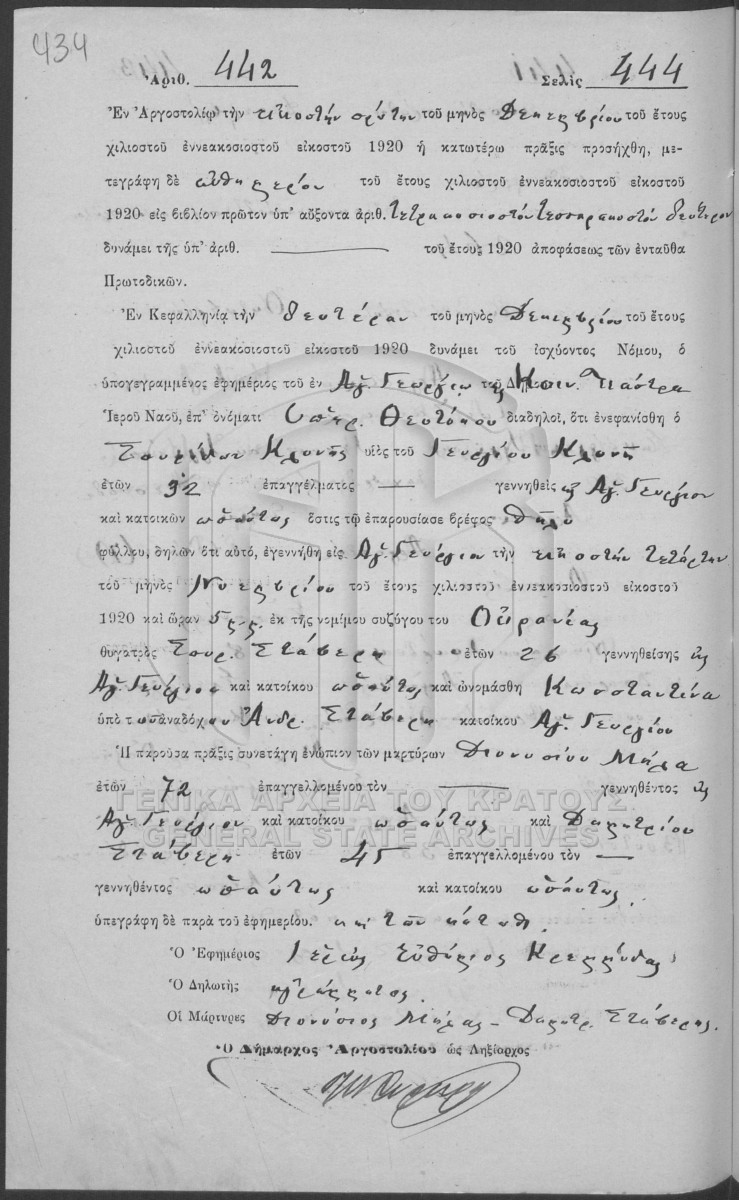 434
Ἀριθ. 442 Σελὶς 444
Ἐν Ἀργοστολίῳ τὴν εἰκοστὴν πρώτην τοῦ μηνὸς Δεκεμβρίου τοῦ ἔτους
χιλιοστοῦ ἐννεακοσιοστοῦ εἰκοστοῦ 1920 ἡ κατωτέρω πρᾶξις προσήχθη, με-
τεγράφη δὲ αὐθημερόν τοῦ ἔτους χιλιοστοῦ ἐννεακοσιοστοῦ εἰκοστοῦ
1920 εἰς βιβλίον πρῶτον ὑπ' αὔξοντα ἀριθ. τετρακοσιοστόν τεσσαρακοστόν δεύτερον
δυνάμει τῆς ὑπ' ἀριθ. τοῦ ἔτους 1920 ἀποφάσεως τῶν ἐνταῦθα
Πρωτοδικῶν.
Ἐν Κεφαλληνίᾳ τὴν δευτέραν τοῦ μηνὸς Δεκεμβρίου τοῦ ἔτους
χιλιοστοῦ ἐννεακοσιοστοῦ εἰκοστοῦ 1920 δυνάμει τοῦ ἰσχύοντος Νόμου, ὁ
ὑπογεγραμμένος ἐφημέριος τοῦ ἐν Ἁγ. Γεωργίῳ τῆς Κοιν. Πάστρα
Ἱεροῦ Ναοῦ, ἐπ' ὀνόματι Ὑπερ. Θεοτόκου διαδηλοῖ, ὅτι ἐνεφανίσθη ὁ
Κλονῆς υἱὸς τοῦ Γεωργίου Κλονῆ
ἐτῶν 32 ἐπαγγέλματος γεννηθεὶς εἰς Ἁγ. Γεώργιον
καὶ κατοικῶν ὡσαύτως ὅστις τῷ ἐπαρουσίασε βρέφος θῆλυ
φύλλου, δηλῶν ὅτι αὐτό, ἐγεννήθη εἰς Ἁγ. Γεώργιον τὴν εἰκοστὴν τετάρτην
τοῦ μηνὸς Νοεμβρίου τοῦ ἔτους χιλιοστοῦ ἐννεακοσιοστοῦ εἰκοστοῦ
1920 καὶ ὥραν 5 μ.μ. ἐκ τῆς νομίμου συζύγου του Οὐρανίας
θυγατρὸς Σπυρ. Στάβερη ἐτῶν 26 γεννηθείσης εἰς
Ἁγ. Γεώργιον καὶ κατοίκου ὡσαύτως καὶ ὠνομάσθη Κωσταντίνα
ὑπὸ τοῦ ἀναδόχου Ἀνδρ. Στάβερη κατοίκου Ἁγ. Γεωργίου
Ἡ παροῦσα πρᾶξις συνετάγη ἐνώπιον τῶν μαρτύρων Διονυσίου Μήλα
ἐτῶν 72 ἐπαγγελλομένου τὸν γεννηθέντος εἰς
Ἁγ. Γεώργιον καὶ κατοίκου ὡσαύτως καὶ Δημητρίου
Στάβερη ἐτῶν 45 ἐπαγγελλομένου τὸν
γεννηθέντος ὡσαύτως καὶ κατοίκου ὡσαύτως
ὑπεγράφη δὲ παρὰ τοῦ ἐφημερίου. καὶ τῶν κάτωθι.
Ὁ Ἐφημέριος Ἱερεὺς Εὐθύμιος
Ὁ Δηλωτὴς ἀγράμματος.
Οἱ Μάρτυρες Διονύσιος Μήλας - Δημητρ. Στάβερης.
Ὁ Δήμαρχος Ἀργοστολίου ὡς Ληξίαρχος
ΓΕΝΙΚΑ ΑΡΧΕΙΑ ΤΟΥ ΚΡΑΤΟΥΣ
GENERAL STATE ARCHIVES